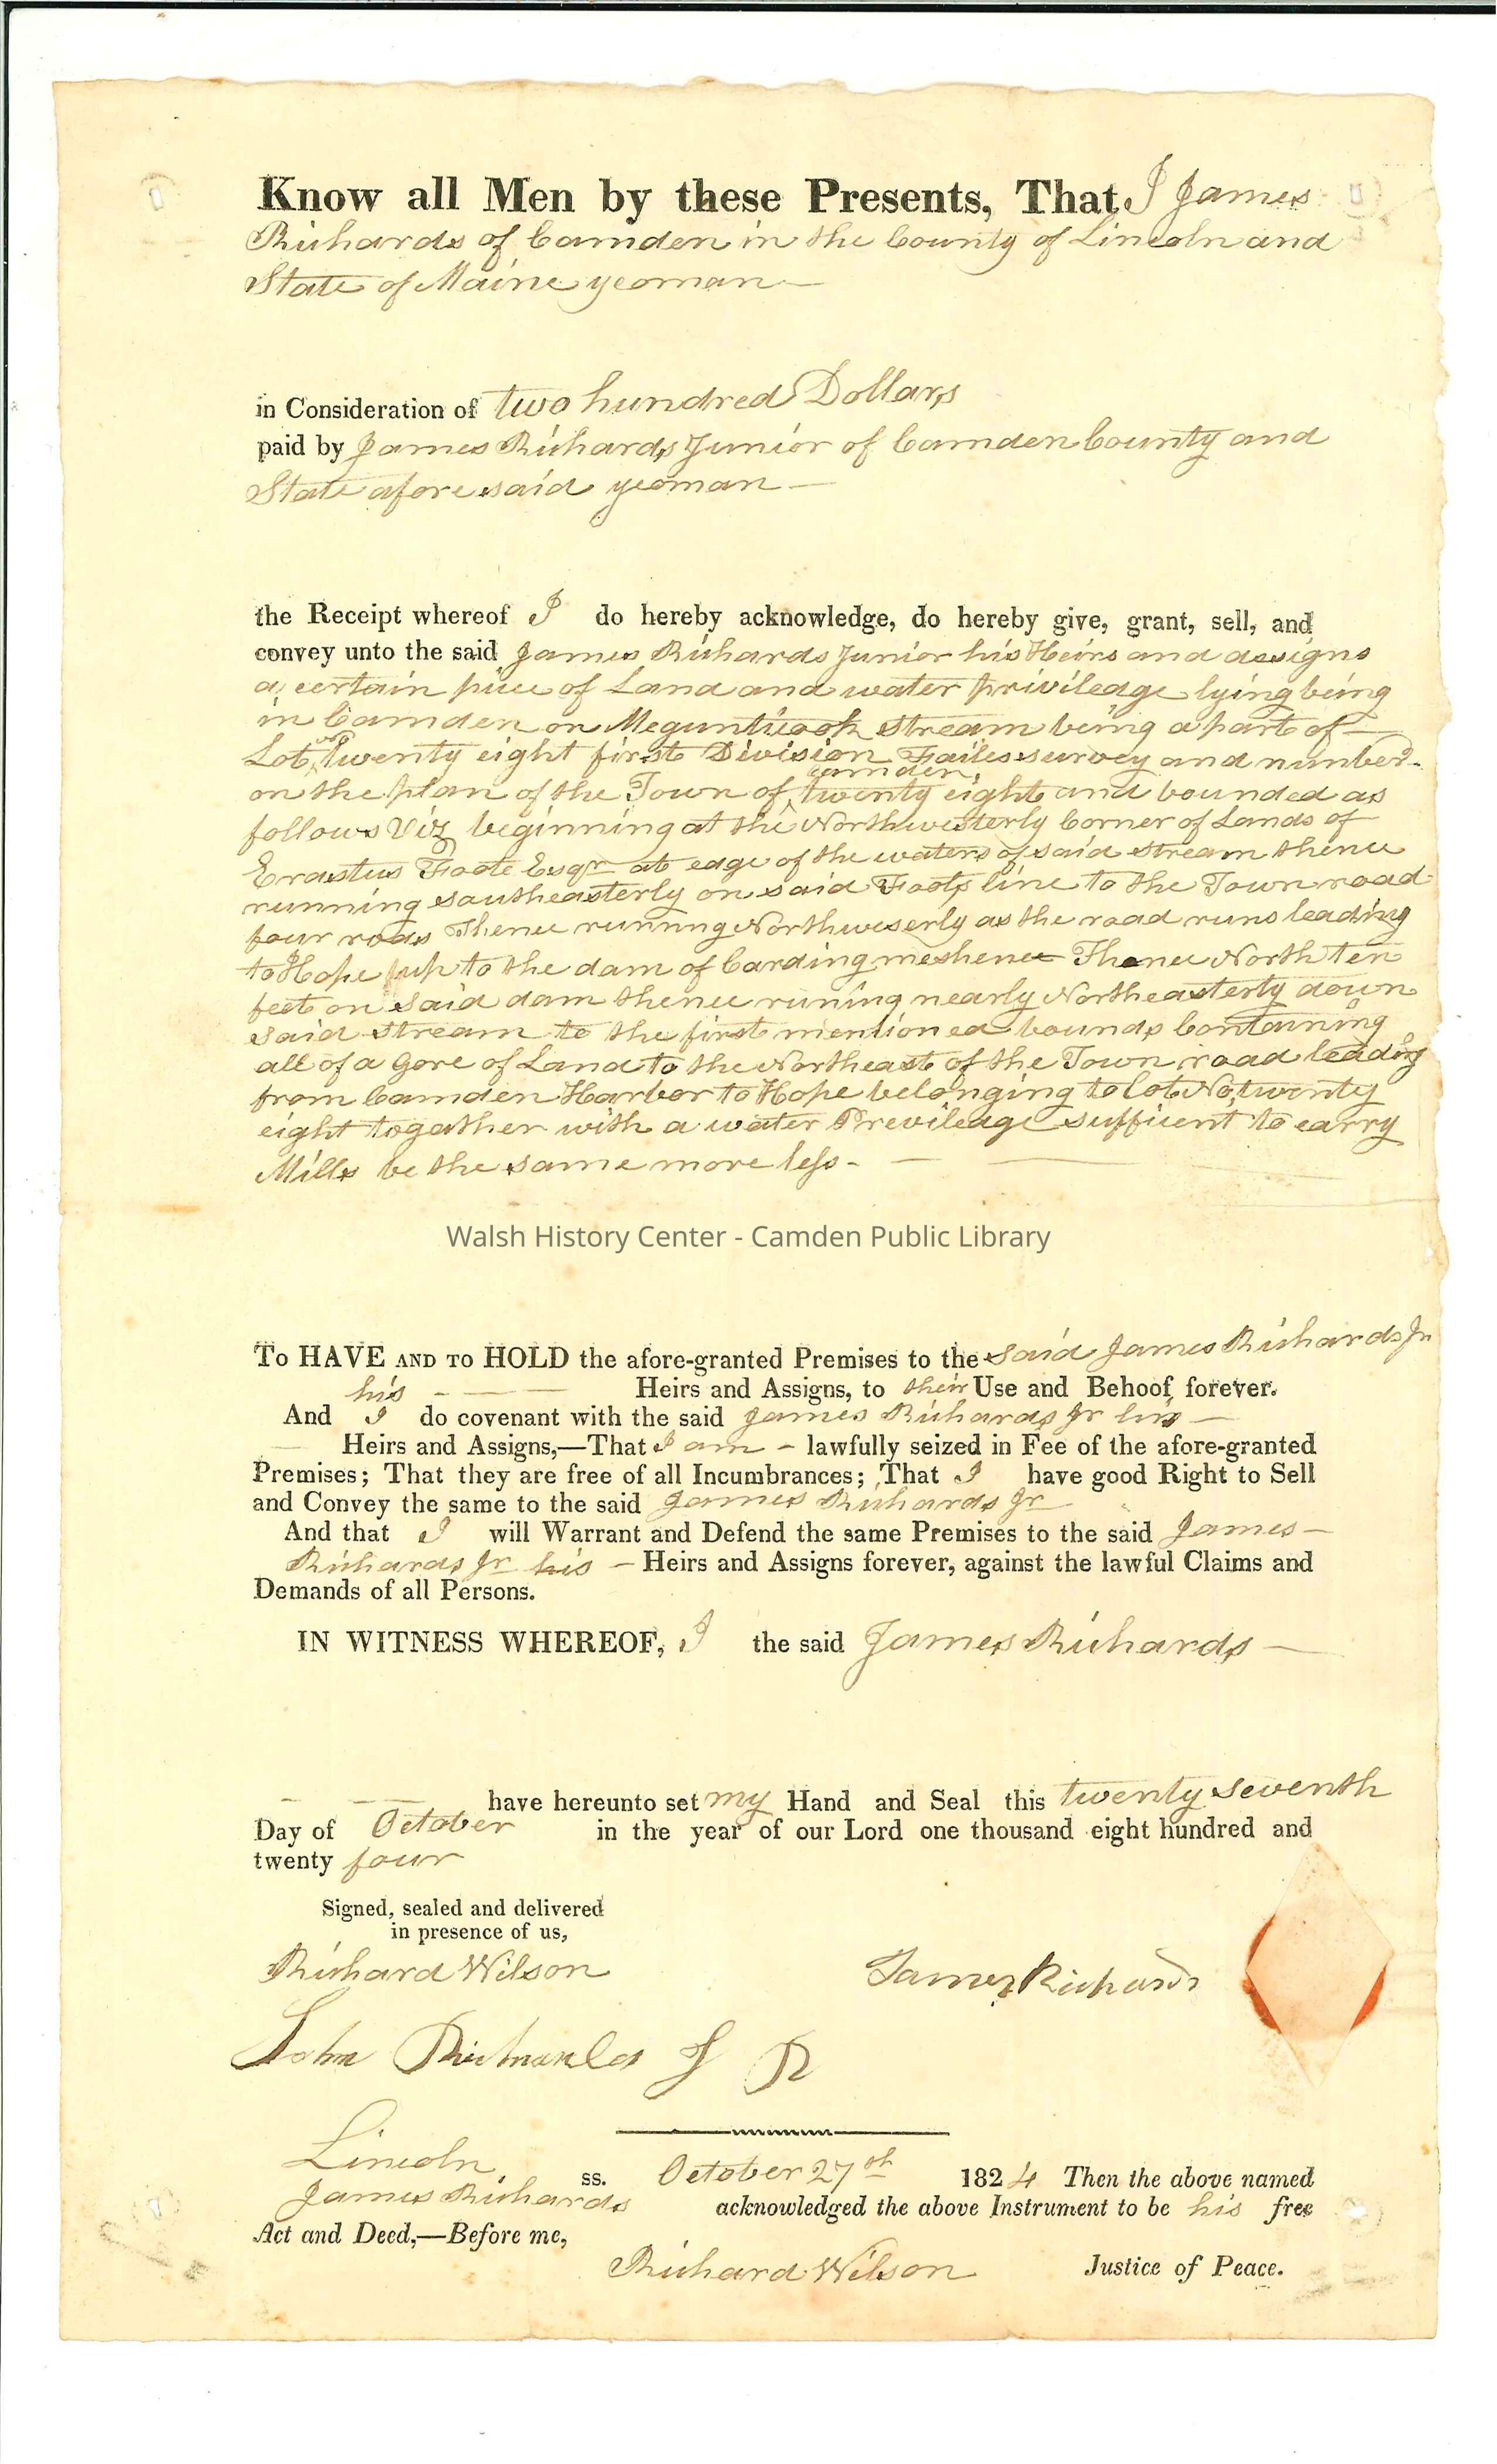 Know all Men by these Presents, That I James
Richards of Camden in the County of Lincoln and
State of Maine yeoman —
in Consideration of two hundred Dollars
paid by James Richards Junior of Camden County and
State aforesaid yeoman —
the Receipt whereof I do hereby acknowledge, do hereby give, grant, sell, and
convey unto the said James Richards Junior his Heirs and assigns
a certain piece of Land and water priviledge lying being
in Camden on Megunticook stream being a part of —
Lot No twenty eight first Division Failes survey and number
on the plan of the Town of Camden, twenty eight and bounded as
follows Viz beginning at the Northwesterly Corner of Lands of
Erastus Foote Esqr at edge of the waters of said stream thence
running southeasterly on said Foots line to the Town road
four rods Thence running Northweserly as the road runs leading
to Hope up to the dam of Carding meshene Thence North ten
feet on said dam thence runing nearly Northeasterly down
said stream to the first mentioned bounds Containing
all of a Gore of Land to the Northeast of the Town road leading
from Camden Harbor to Hope belonging to lot No twenty
eight together with a water Previleage sufficent to carry
Mills be the same more less -
Walsh History Center - Camden Public Library
To HAVE AND TO HOLD the afore-granted Premises to the said James Richards Jr
his — Heirs and Assigns, to their Use and Behoof forever.
And I do covenant with the said James Richards Jr his —
Heirs and Assigns,—That I am - lawfully seized in Fee of the afore-granted
Premises; That they are free of all Incumbrances; That I have good Right to Sell
and Convey the same to the said James Richards Jr
And that I will Warrant and Defend the same Premises to the said James —
Richards Jr his — Heirs and Assigns forever, against the lawful Claims and
Demands of all Persons.
IN WITNESS WHEREOF, I the said James Richards —
have hereunto set my Hand and Seal this twenty seventh
Day of October in the year of our Lord one thousand eight hundred and
twenty four
Signed, sealed and delivered
in presence of us,
Richard Wilson
James Richards
John Richards J R
Lincoln ss. October 27th 1824 Then the above named
James Richards acknowledged the above Instrument to be his free
Act and Deed,—Before me,
Richard Wilson Justice of Peace.